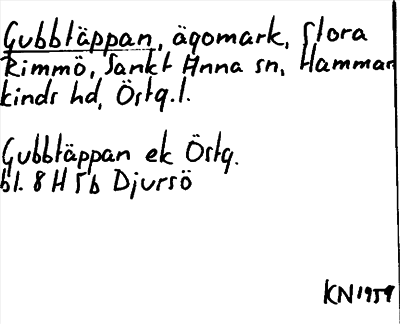 Gubbtäppan, ägomark, Stora
Rimmö, Sankt Anna sn, Hammar
kinds hd, Östg.l.
Gubbtäppan ek Östg.
bl. 8 H 5b Djursö
KN 1959